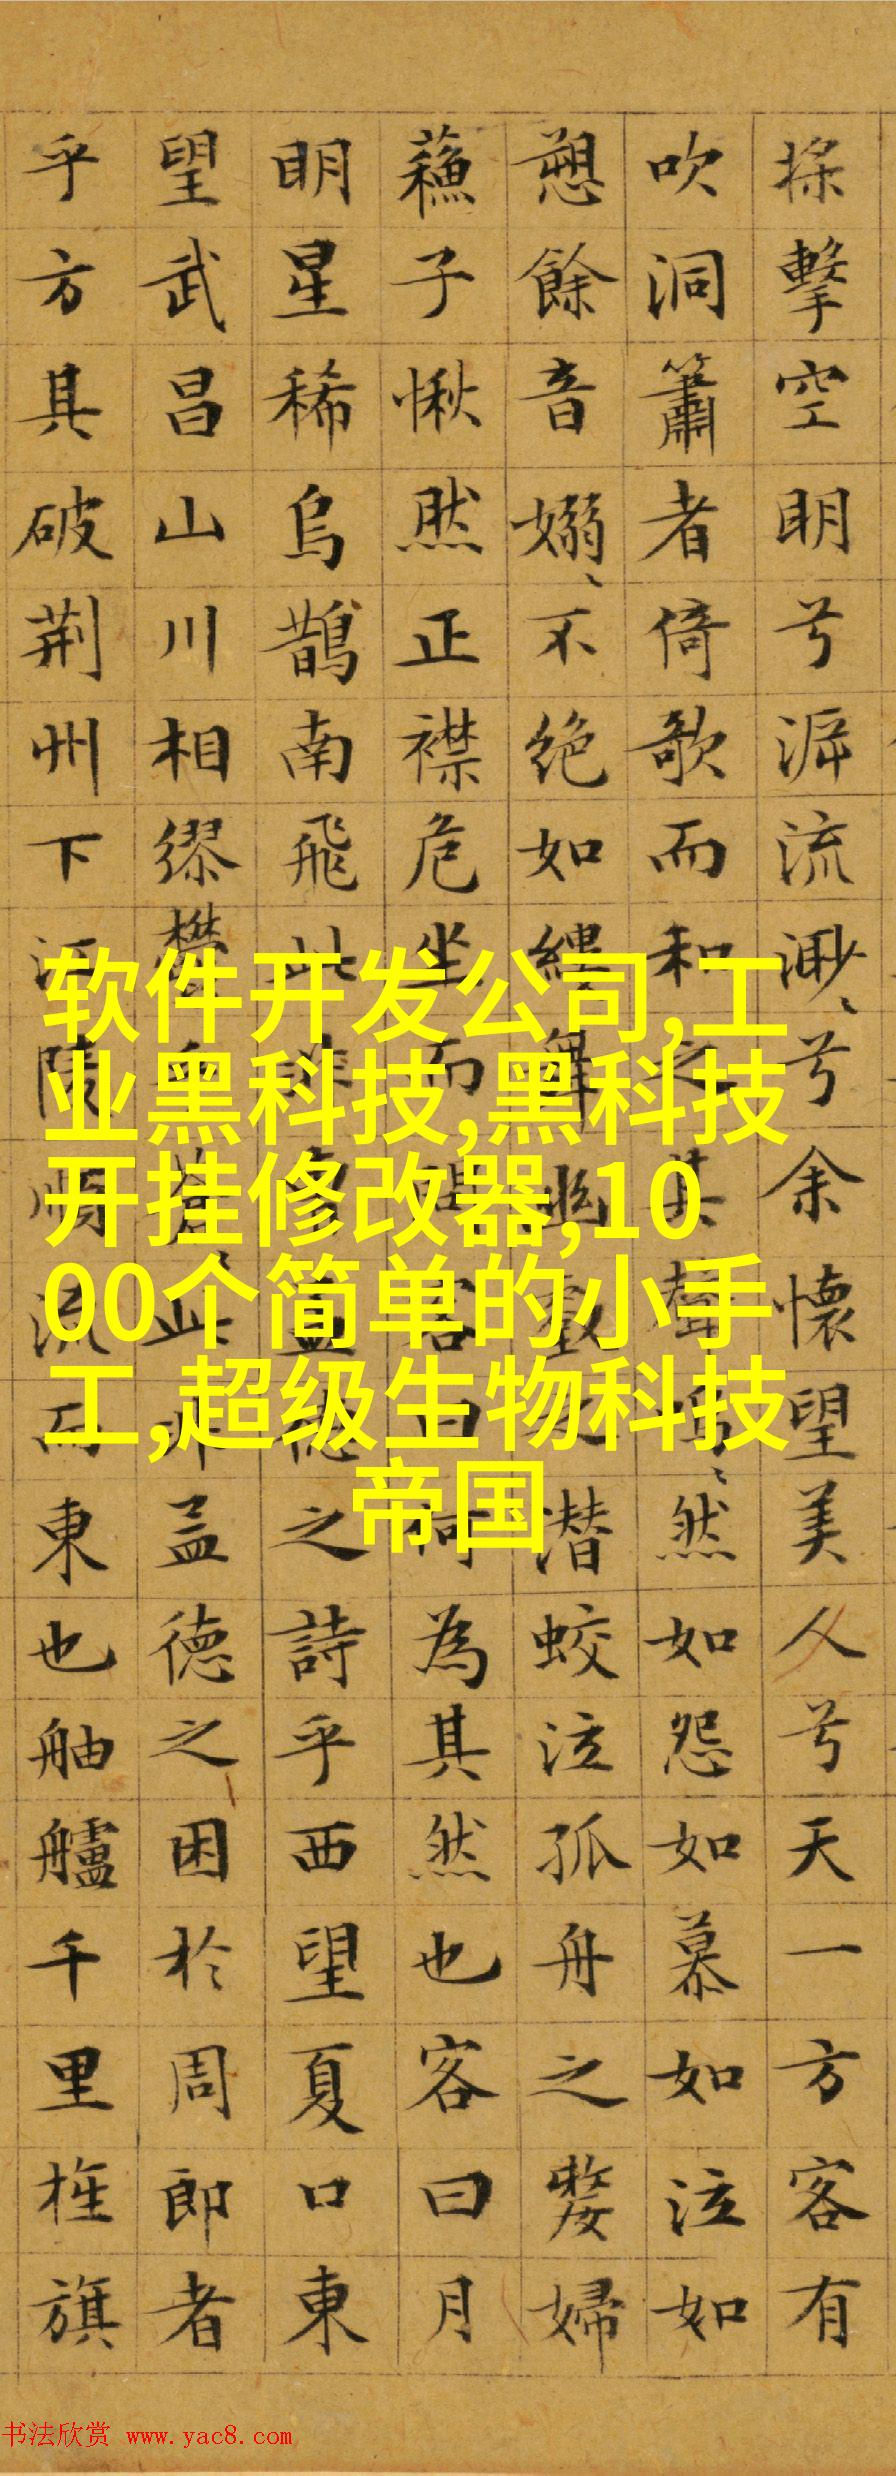 槳擊空明兮泝流渺〻兮余懷望美人兮天一方客有
吹洞簫者倚歌而和之其聲嗚〻然如怨如慕如泣如
愬餘音嫋〻不絕如縷舞幽壑之潛蛟泣孤舟之嫠婦
蘇子愀然正襟危坐而問客曰何為其然也客曰月
明星稀烏鵲南飛此非曹孟德之詩乎西望夏口東
望武昌山川相繆鬱乎蒼〻此非孟德之困於周郎者
乎方其破荊州下江陵順流而東也舳艫千里旌旗
软件开发公司,工
业黑科技,黑科技
开挂修改器,10
00个简单的小手
工,超级生物科技
帝国
书法欣赏 www.yac8.com